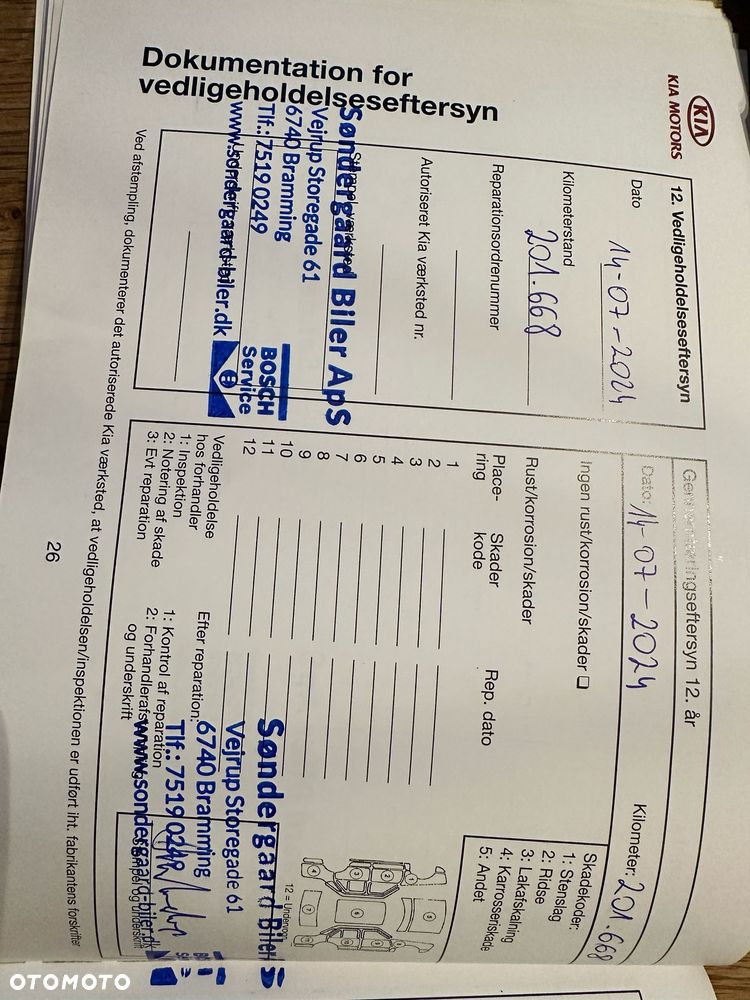 Dokumentation for
vedligeholdelseseftersyn
KIA
KIA MOTORS
12. Vedligeholdelseseftersyn
Dato
14-07-2024
Kilometerstand
201.668
Reparationsordrenummer
Autoriseret Kia værksted nr.
Søndergaard Biler ApS
Vejrup Storegade 61
6740 Bramming
Tlf.: 7519 0249
www.sondergaard-biler.dk
BOSCH
Service
Gennemtæringseftersyn 12. år
Dato: 14-07-2024
Kilometer: 201.668
Ingen rust/korrosion/skader
Rust/korrosion/skader
Place-
ring
Skader
kode
Rep. dato
1
2
3
4
5
6
7
8
9
10
11
12
Skadekoder:
1: Stenslag
2: Ridse
3: Lakafskalning
4: Karrosseriskade
5: Andet
12 = Undervogn
Vedligeholdelse
hos forhandler
1: Inspektion
2: Notering af skade
3: Evt reparation
Efter reparation:
1: Kontrol af reparation
2: Forhandlerafs
og underskrift
Søndergaard Biler
Vejrup Storegade 61
6740 Bramming
Tlf.: 7519 0249
www.sondergaard-biler.dk
Stempel og underskrift
Ved afstempling, dokumenterer det autoriserede Kia værksted, at vedligeholdelsen/inspektionen er udført iht. fabrikantens forskrifter
26
OTOMOTO